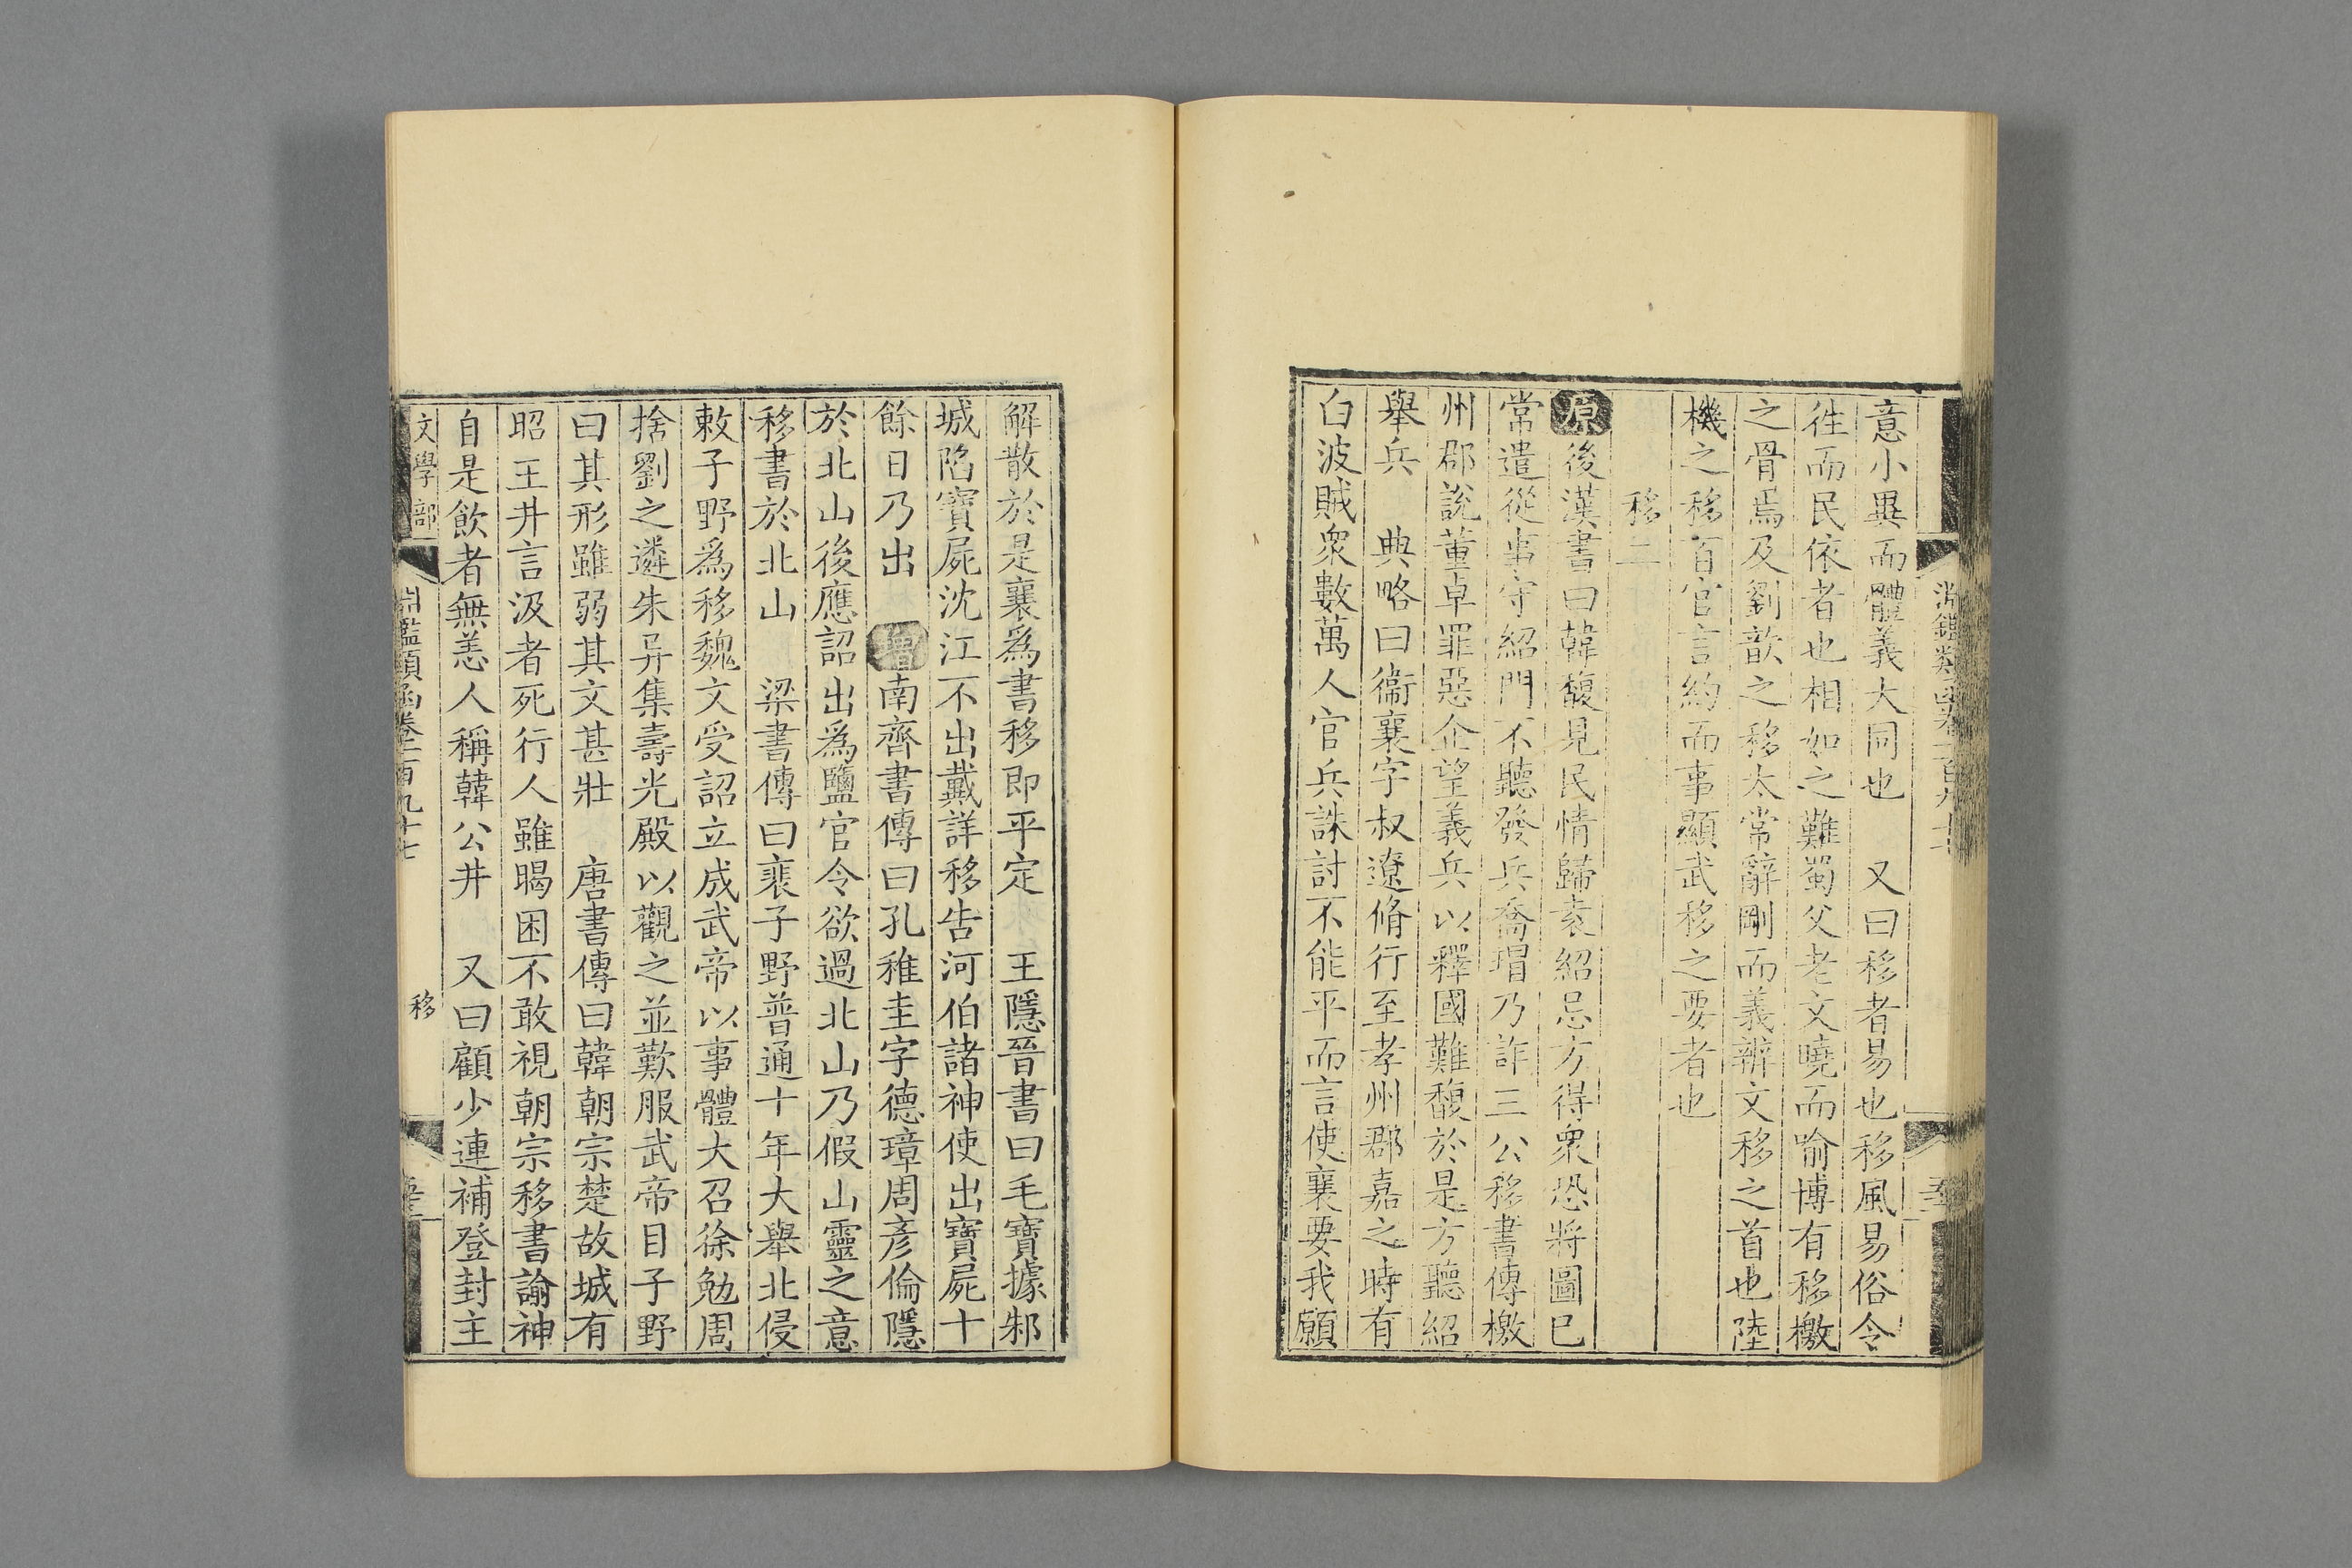 意小異而體義大同也　又曰移者易也移風易俗令
徃而民依者也相如之難蜀父老文曉而喻博有移檄
之骨焉及劉歆之移太常辭剛而義辨文移之首也陸
機之移百官言約而事顯武移之要者也
移二
原後漢書曰韓馥見民情歸袁紹忌方得衆恐將圖已
常遣從事守紹門不聽發兵喬瑁乃詐三公移書傳檄
州郡說董卓罪惡企望義兵以釋國難馥於是方聽紹
舉兵　典略曰衞襄字叔遼脩行至孝州郡嘉之時有
白波賊衆數萬人官兵誅討不能平而言使襄要我願
解散於是襄爲書移即平定　王隱晉書曰毛寶據邾
城陷寶屍沈江不出戴詳移告河伯諸神使出寶屍十
餘日乃出　增南齊書傳曰孔稚圭字德璋周彥倫隱
於北山後應詔出爲鹽官令欲過北山乃假山靈之意
移書於北山　梁書傳曰裴子野普通十年大舉北侵
敕子野爲移魏文受詔立成武帝以事體大召徐勉周
捨劉之遴朱异集壽光殿以觀之並歎服武帝目子野
曰其形雖弱其文甚壯　唐書傳曰韓朝宗楚故城有
昭王井言汲者死行人雖暍困不敢視朝宗移書諭神
自是飲者無恙人稱韓公井　又曰顧少連補登封主
文學部
淵鑑類函卷二百九十七
移